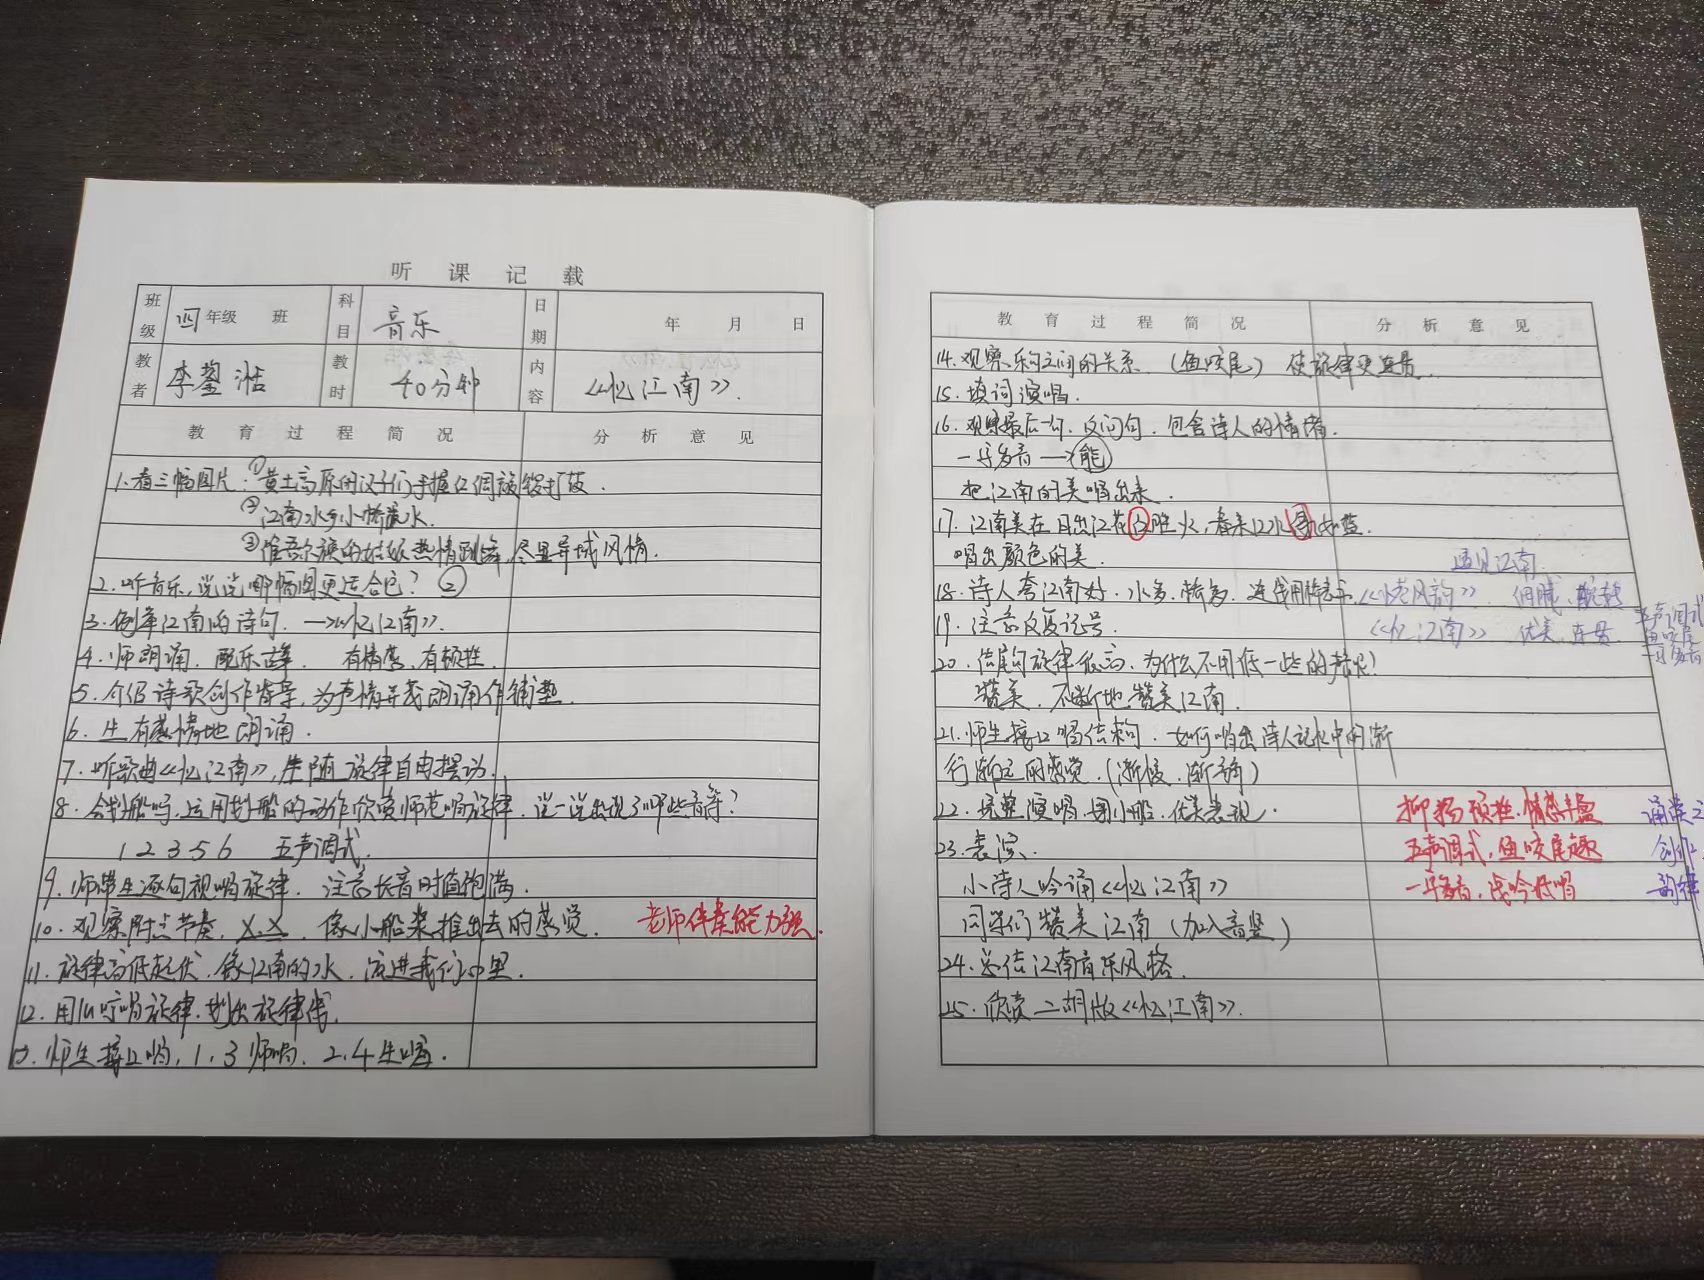 听课记载
班级 四年级 班 科目 音乐 日期 年 月 日
教者 李鋆湉 教时 40分钟 内容 《忆江南》.
教育过程简况 分析意见
1.看三幅图片:①黄土高原的汉子们手握红绸旗锣打鼓.
②江南水乡小桥流水.
③维吾尔族的姑娘热情跳舞,尽显异域风情.
2.听音乐,说说哪幅图更适合它?②
3.例举江南的诗句.→《忆江南》.
4.师朗诵.配乐古筝. 有情感,有顿挫.
5.介绍诗歌创作背景,为声情并茂朗诵作铺垫.
6.生有感情地朗诵.
7.听歌曲《忆江南》,生随旋律自由摆动.
8.会划船吗,运用划船的动作欣赏师范唱旋律,说一说出现了哪些音符?
12356 五声调式.
9.师带生逐句视唱旋律.注意长音时值饱满.
10.观察附点节奏,X.X.像小船桨推出去的感觉. 老师伴奏能力强.
11.旋律高低起伏.像江南的水.流进我们心里.
12.用lu哼唱旋律.划出旋律线.
13.师生接口唱,1.3师唱.2.4生唱.
教育过程简况 分析意见
14.观察乐句之间的关系.(鱼咬尾)使旋律更连贯.
15.填词演唱.
16.观察最后一句.反问句.包含诗人的情绪.
一字多音→能
把江南的美唱出来.
17.江南美在日出江花红胜火,春来江水绿如蓝.
唱出颜色的美. 遇见江南
18.诗人夸江南好.水多,桥多.连线用 《 风韵》 细腻、
19.注意反复记号. 《忆江南》 优美、连贯 五声调式
鱼咬尾
一字多音
20.结尾句旋律很高.为什么不用低一些的声呢?
赞美.不断地赞美江南.
21.师生接口唱结束句.如何唱出诗人记忆中的渐
行渐远的感觉.(渐慢.渐弱)
22.完整演唱.划小船.优美表现. 抑扬顿挫.情感丰盈 诵读之
23.表演. 五声调式,鱼咬尾趣 创作
小诗人吟诵《忆江南》 一字多音,浅吟低唱 韵律
同学们赞美江南(加入音竖)
24.总结江南音乐风格.
25.欣赏二胡版《忆江南》.